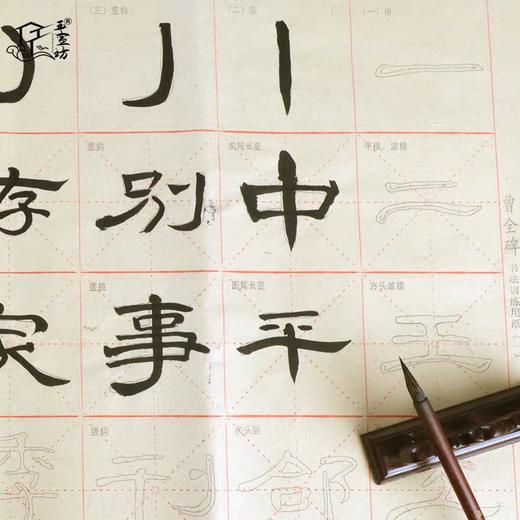 玉宣坊®
曹全碑
书法训练用纸
（一）横
一
平横、波横
二
方头波横
王
（二）竖
丨
尖尾长竖
中
圆尾长竖
平
尖头竖
郃
（三）竖钩
亅
竖钩
别
竖钩
事
竖钩
刊
存
家
季